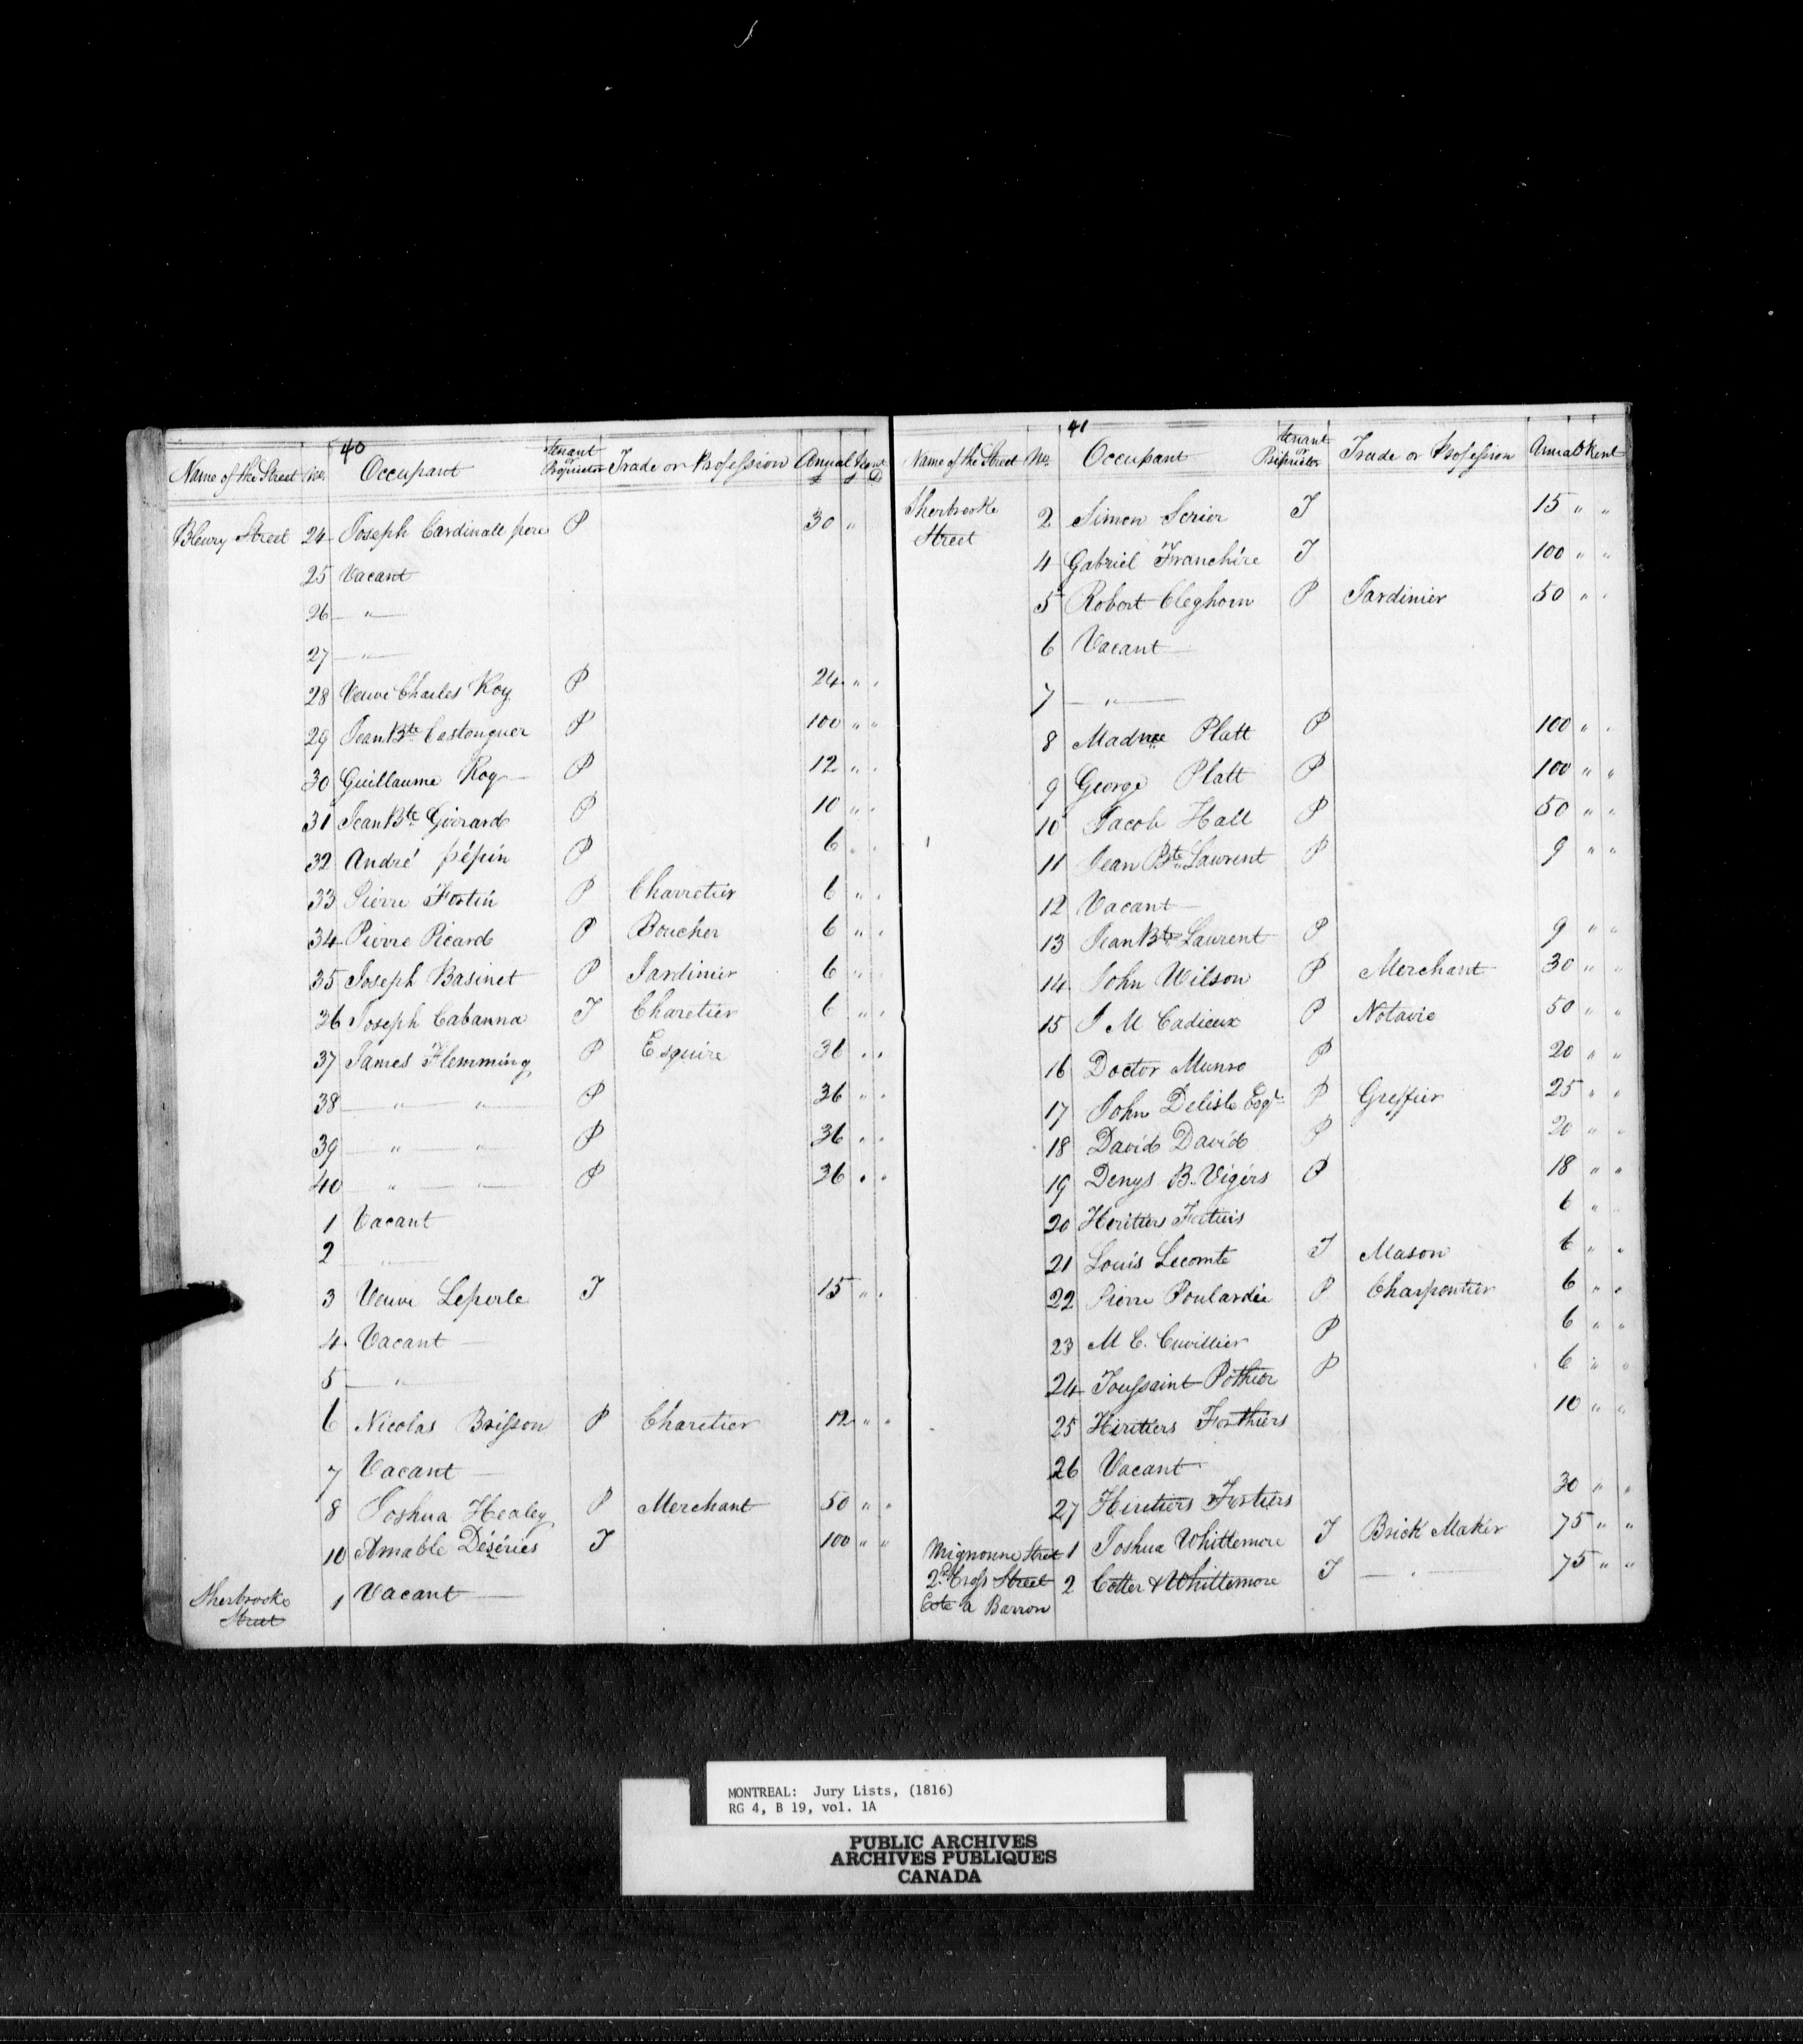 40
Name of the Street No. Occupant Tenant or Proprietor Trade or Profession Annual Rent
£ s D
Bleury Street 24 Joseph Cardinall pere P 30 "
25 Vacant
26 — " —
27 — " —
28 Veuve Charles Roy P 24 " "
29 Jean Bte Castonguer P 100 " "
30 Guillaume Roy P 12 " "
31 Jean Bte Girrard P 10 " "
32 André pépin P 6 " "
33 Pierre Fortin P Charretier 6 " "
34 Pierre Picard P Boucher 6 " "
35 Joseph Basinet P Jardinier 6 " "
36 Joseph Cabanna T Charetier 6 " "
37 James Flemming P Esquire 36 " "
38 — " — " — P 36 " "
39 — " — " — P 36 " "
40 — " — " — P 36 " "
1 Vacant
2 — " —
3 Veuve Leperle T 15 " "
4 Vacant
5 — " —
6 Nicolas Brisson P Charetier 12 " "
7 Vacant
8 Joshua Healey P Merchant 50 " "
10 Amable Déséries T 100 " "
Sherbrooke Street 1 Vacant
41
Name of the Street No. Occupant Tenant or Proprietor Trade or Profession Annual Rent
Sherbrooke Street 2 Simon Serier T 15 " "
4 Gabriel Franchire T 100 " "
5 Robert Cleghorn P Jardinier 50 " "
6 Vacant
7 — " —
8 Madme Platt P 100 " "
9 George Platt P 100 " "
10 Jacob Hall P 50 " "
11 Jean Bte Laurent P 9 " "
12 Vacant
13 Jean Bte Laurent P 9 " "
14 John Wilson P Merchant 30 " "
15 J M Cadieux P Notaire 50 " "
16 Doctor Munro P 20 " "
17 John Delisle Esqr P Greffier 25 " "
18 David David P 20 " "
19 Denys B. Vigers P 18 " "
20 Heritiers 6 " "
21 Louis Lecomte T Mason 6 " "
22 Pierre Poulardie P Charpentier 6 " "
23 M C. Cuvillier P 6 " "
24 Toussaint Pothier P 6 " "
25 Hiretiers Forthiers 10 " "
26 Vacant
27 Hiretiers Fortiers 30 " "
Mignonne Street 1 Joshua Whittemore T Brick Maker 75 " "
2d Cross Street 2 Cotter & Whittemore T — " — 75 " "
Cote a Barron
MONTREAL: Jury Lists, (1816)
RG 4, B 19, vol. 1A
PUBLIC ARCHIVES
ARCHIVES PUBLIQUES
CANADA